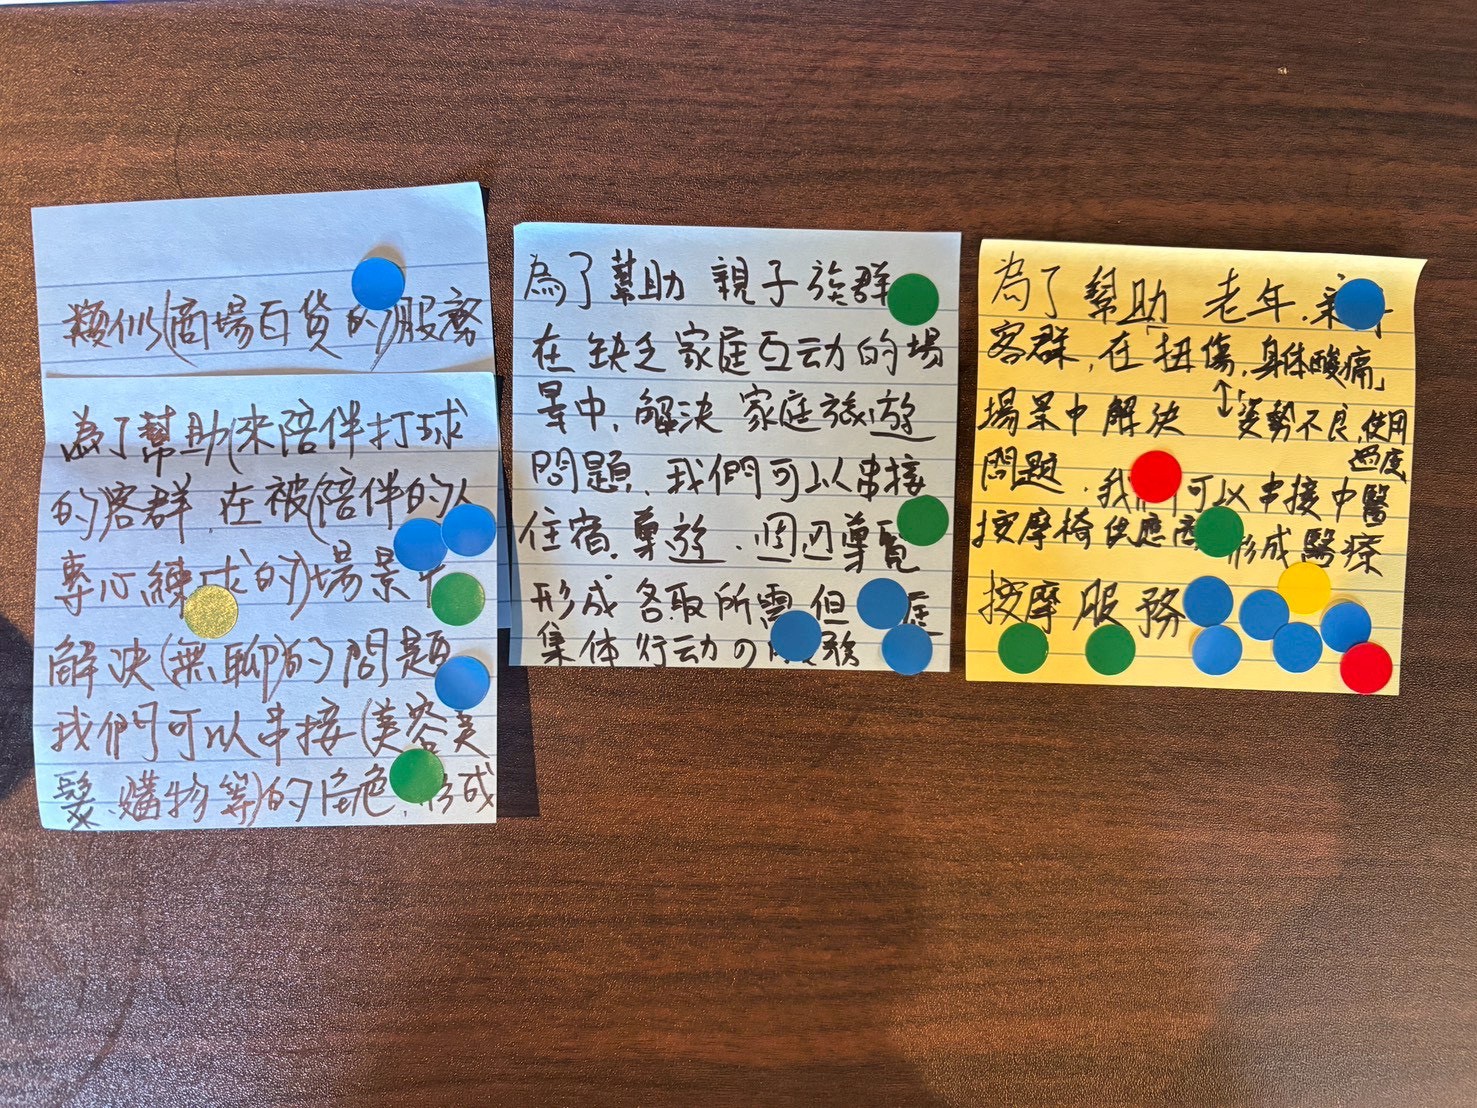 類似(商場百貨的)服務
為了幫助(來陪伴打球
的)客群,在被(陪伴的人
專心練球的)場景中
解決(無聊的)問題
我們可以串接(美容美
髮、購物等)的角色,形成
為了幫助 親子族群
在缺乏家庭互动的場
景中,解決家庭旅遊
問題,我們可以串接
住宿、導遊、周边導覽
形成各取所需但 庭
集体行动の服務
為了幫助 老年、
客群,在「扭傷,身体酸痛」
↕姿勢不良,使用
過度
場景中解決
問題,我們可以串接中醫
按摩椅供應商 形成醫療
按摩服務